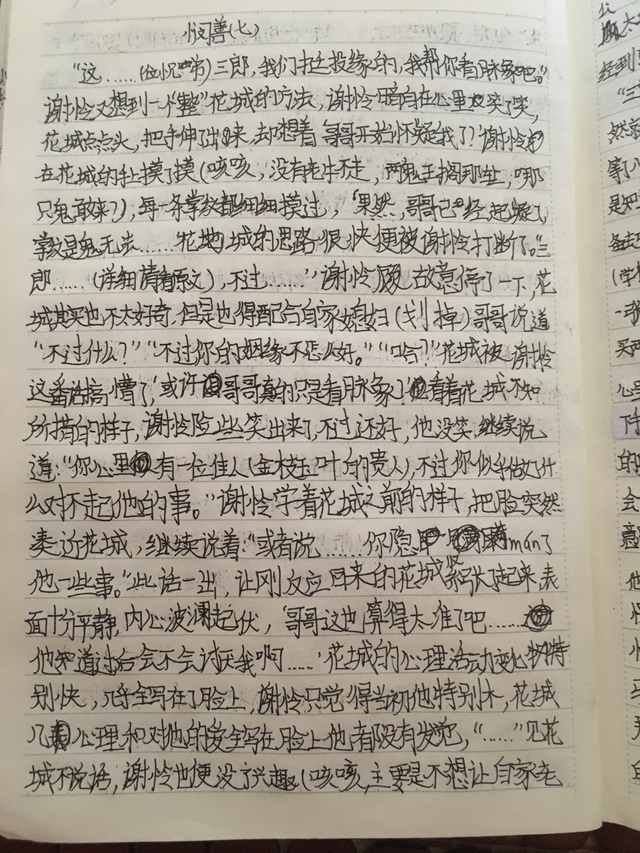 悯善(七)
“这……(位怳哨)三郎,我们挺投缘的,我帮你看脉象吧。”
谢怜又想到一个“整”花城的方法,谢怜暗自在心里笑了笑,
花城点点头,把手伸了出来,却想着哥哥开始怀疑我了?谢怜
在花城的手上摸了摸(咳咳,没有牵牛不走,两鬼王搁那处,哪
只鬼敢来?),每一条掌纹都细细摸过,‘果然,哥哥已经起疑了
掌纹是鬼无法……花城的思路很快便被谢怜打断了。“三
郎……(详细请看原文),不过……”谢怜故意停了一下,花
城其实也不太好奇,但是也得配合自家媳妇(划掉)哥哥说道
“不过什么?”“不过你的姻缘不怎么好。”“哈?”花城被谢怜
这番话搞懵了,‘或许哥哥真的只是看脉象’看着花城不知
所措的样子,谢怜险些笑出来了,不过还好,他没笑,继续说
道:“你心里有一位佳人(金枝玉叶的贵人),不过你似乎做了什
么对不起他的事。”谢怜学着花城之前的样子,把脸突然
凑近花城,继续说着:“或者说……你隐man了
他一些事。”此话一出,让刚反应回来的花城紧张了起来,表
面十分平静,内心波澜起伏,‘哥哥这也算得太准了吧……
他知道过后会不会讨厌我啊……’花城的心理活动变化特
别快,几乎全写在了脸上,谢怜只觉得当初他特别木,花城
几心理和对他的爱全写在脸上他都没有发觉,“……”见花
城不说话,谢怜也便没了兴趣(咳咳,主要是不想让自家老